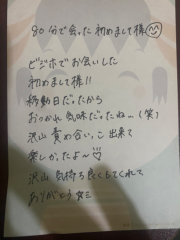 80分で会った初めまして様
ビジホでお会いした
初めまして様!!
移動日だったから
おつかれ気味だったね…(笑)
沢山責め合いっこ出来て
楽しかったよ〜♡
沢山気持ち良くしてくれて
ありがとう